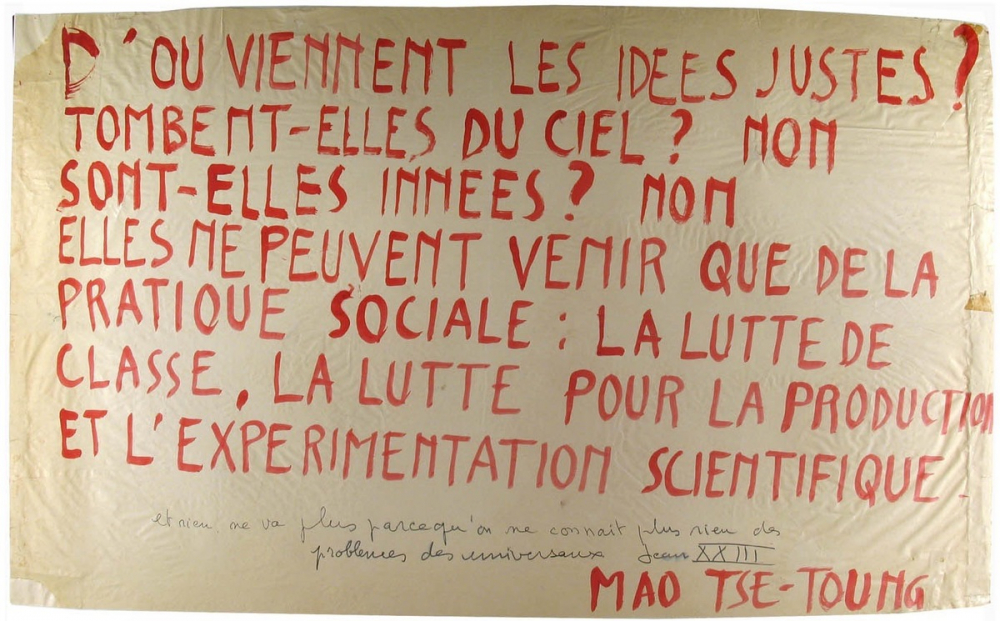 D'OU VIENNENT LES IDEES JUSTES ?
TOMBENT-ELLES DU CIEL ? NON
SONT-ELLES INNEES ? NON
ELLES NE PEUVENT VENIR QUE DE LA
PRATIQUE SOCIALE : LA LUTTE DE
CLASSE, LA LUTTE POUR LA PRODUCTION
ET L'EXPERIMENTATION SCIENTIFIQUE -
et rien ne va plus parcequ'on ne connait plus rien des
problemes des universaux Jean XXIII
MAO TSE-TOUNG